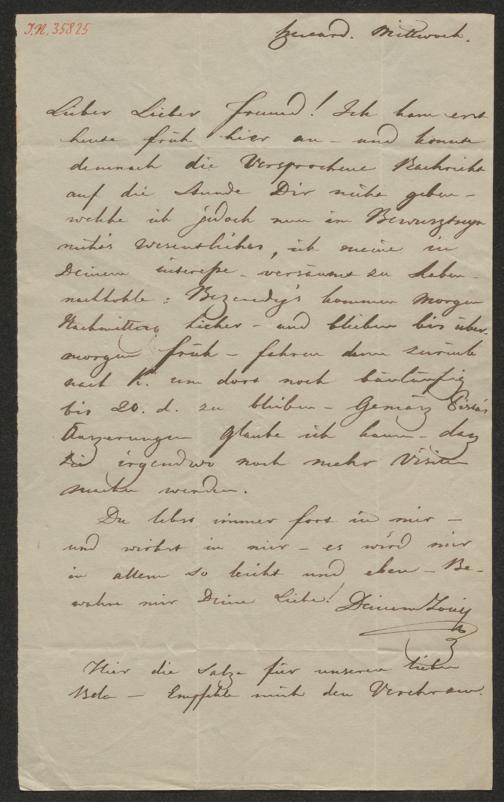 I.N. 35825
Mittwoch.
Lieber Lieber Freund! Ich kam erst
heute früh hier an – und konnte
demnach die Versprochene Nachricht
auf die Stunde Dir nicht geben –
welche ich jedoch nun im Bewusztseyn
nichts wesentliches, ich meine in
Deinem interesse – versäumt zu haben –
nachhohle: Bezeredj's kommen Morgen
Nachmittag hieher – und bleiben bis über-
morgen früh – fahren dann zurück
nach H. um dort noch
bis 20. d. zu bleiben – Gemäsz
Äuszerungen glaube ich kaum – dasz
Sie irgendwo noch mehr Visiten
machen werden.
Du lebst immer fort in mir –
und wirkst in mir – es wird mir
in allem so leicht und eben – Be-
wahre mir Deine Liebe! Deinem
Hier die Salze für unseren lieben
Bela – Empfehle mich den